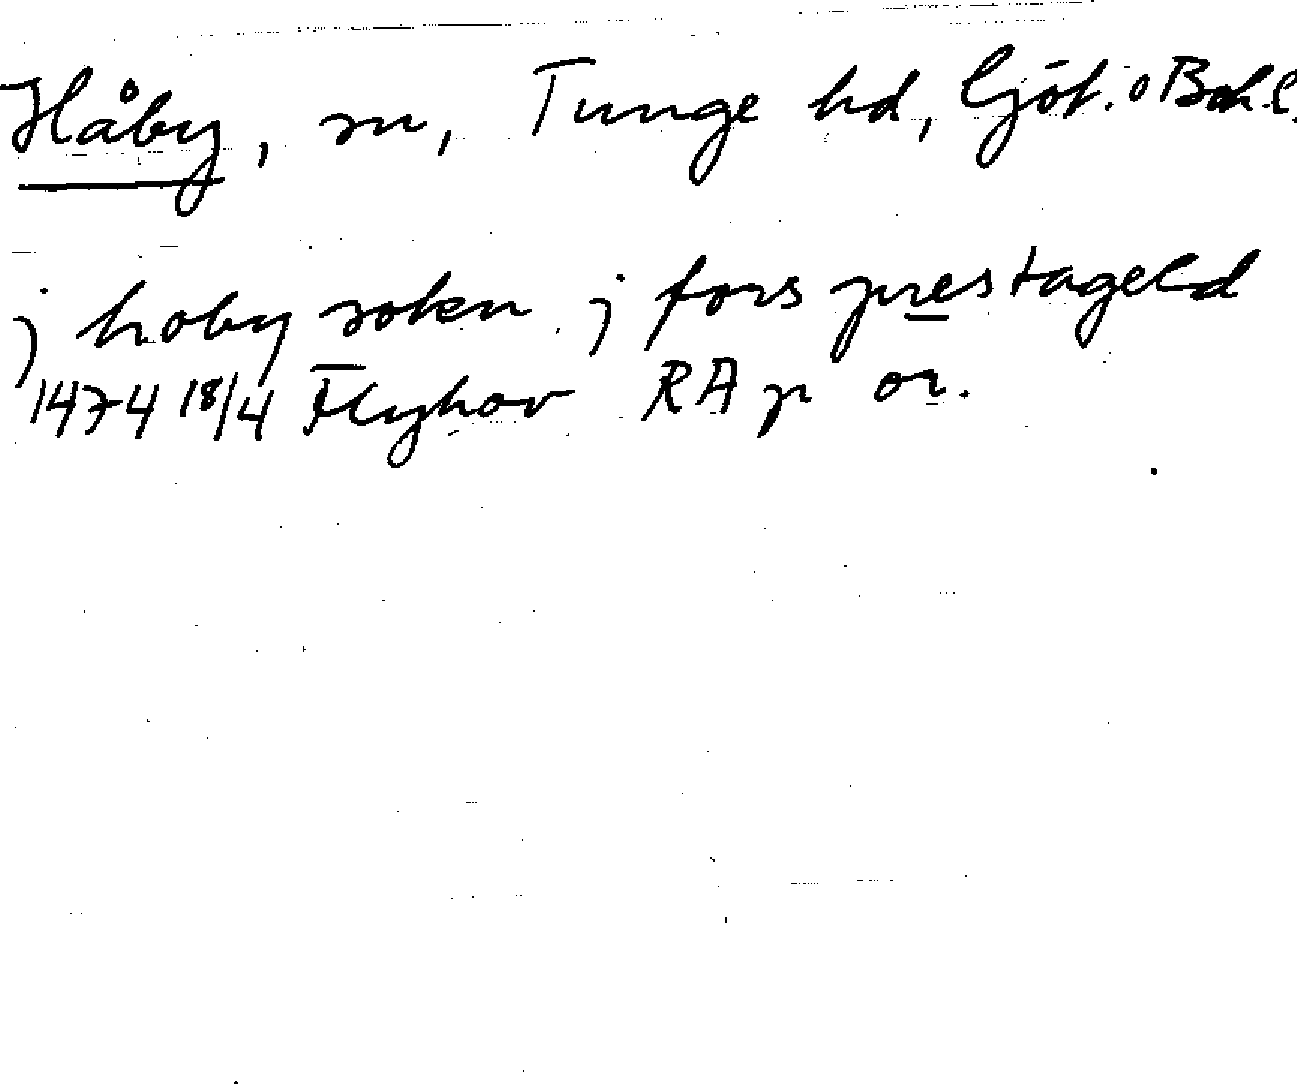 Håby, sn, Tunge hd, Gjöt. o Bohl.
j hoby sokn j fors prestageld
1474 18/4 Flyhov RA p or.